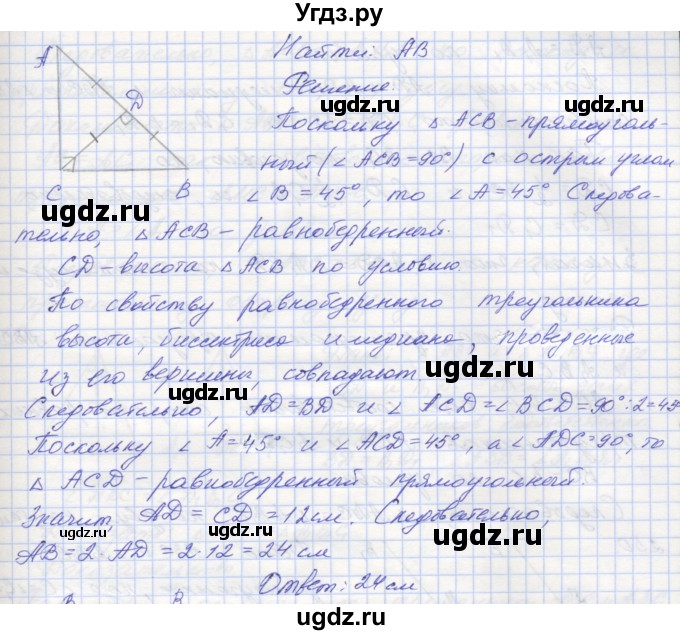 Угдз.ру
Найти: AB
A
Решение.
D
Поскольку △ ACB - прямоуголь-
ный (∠ ACB = 90°) с острым углом
C B ∠ B = 45°, то ∠ A = 45° Следова-
тельно, △ ACB - равнобедренный.
CD - высота △ ACB по условию.
По свойству равнобедренного треугольника
высота, биссектриса и медиана, проведенные
из его вершины, совпадают
Следовательно, AD = BD и ∠ ACD = ∠ BCD = 90° : 2 = 45
Поскольку ∠ A = 45° и ∠ ACD = 45°, а ∠ ADC = 90°, то
△ ACD - равнобедренный прямоугольный.
Значит, AD = CD = 12 см. Следовательно,
AB = 2 · AD = 2 · 12 = 24 см
Ответ: 24 см
B B
ugdz.ru
ugdz.ru
ugdz.ru
ugdz.ru
ugdz.ru
ugdz.ru
ugdz.ru
ugdz.ru
ugdz.ru
ugdz.ru
ugdz.ru
ugdz.ru
ugdz.ru
ugdz.ru